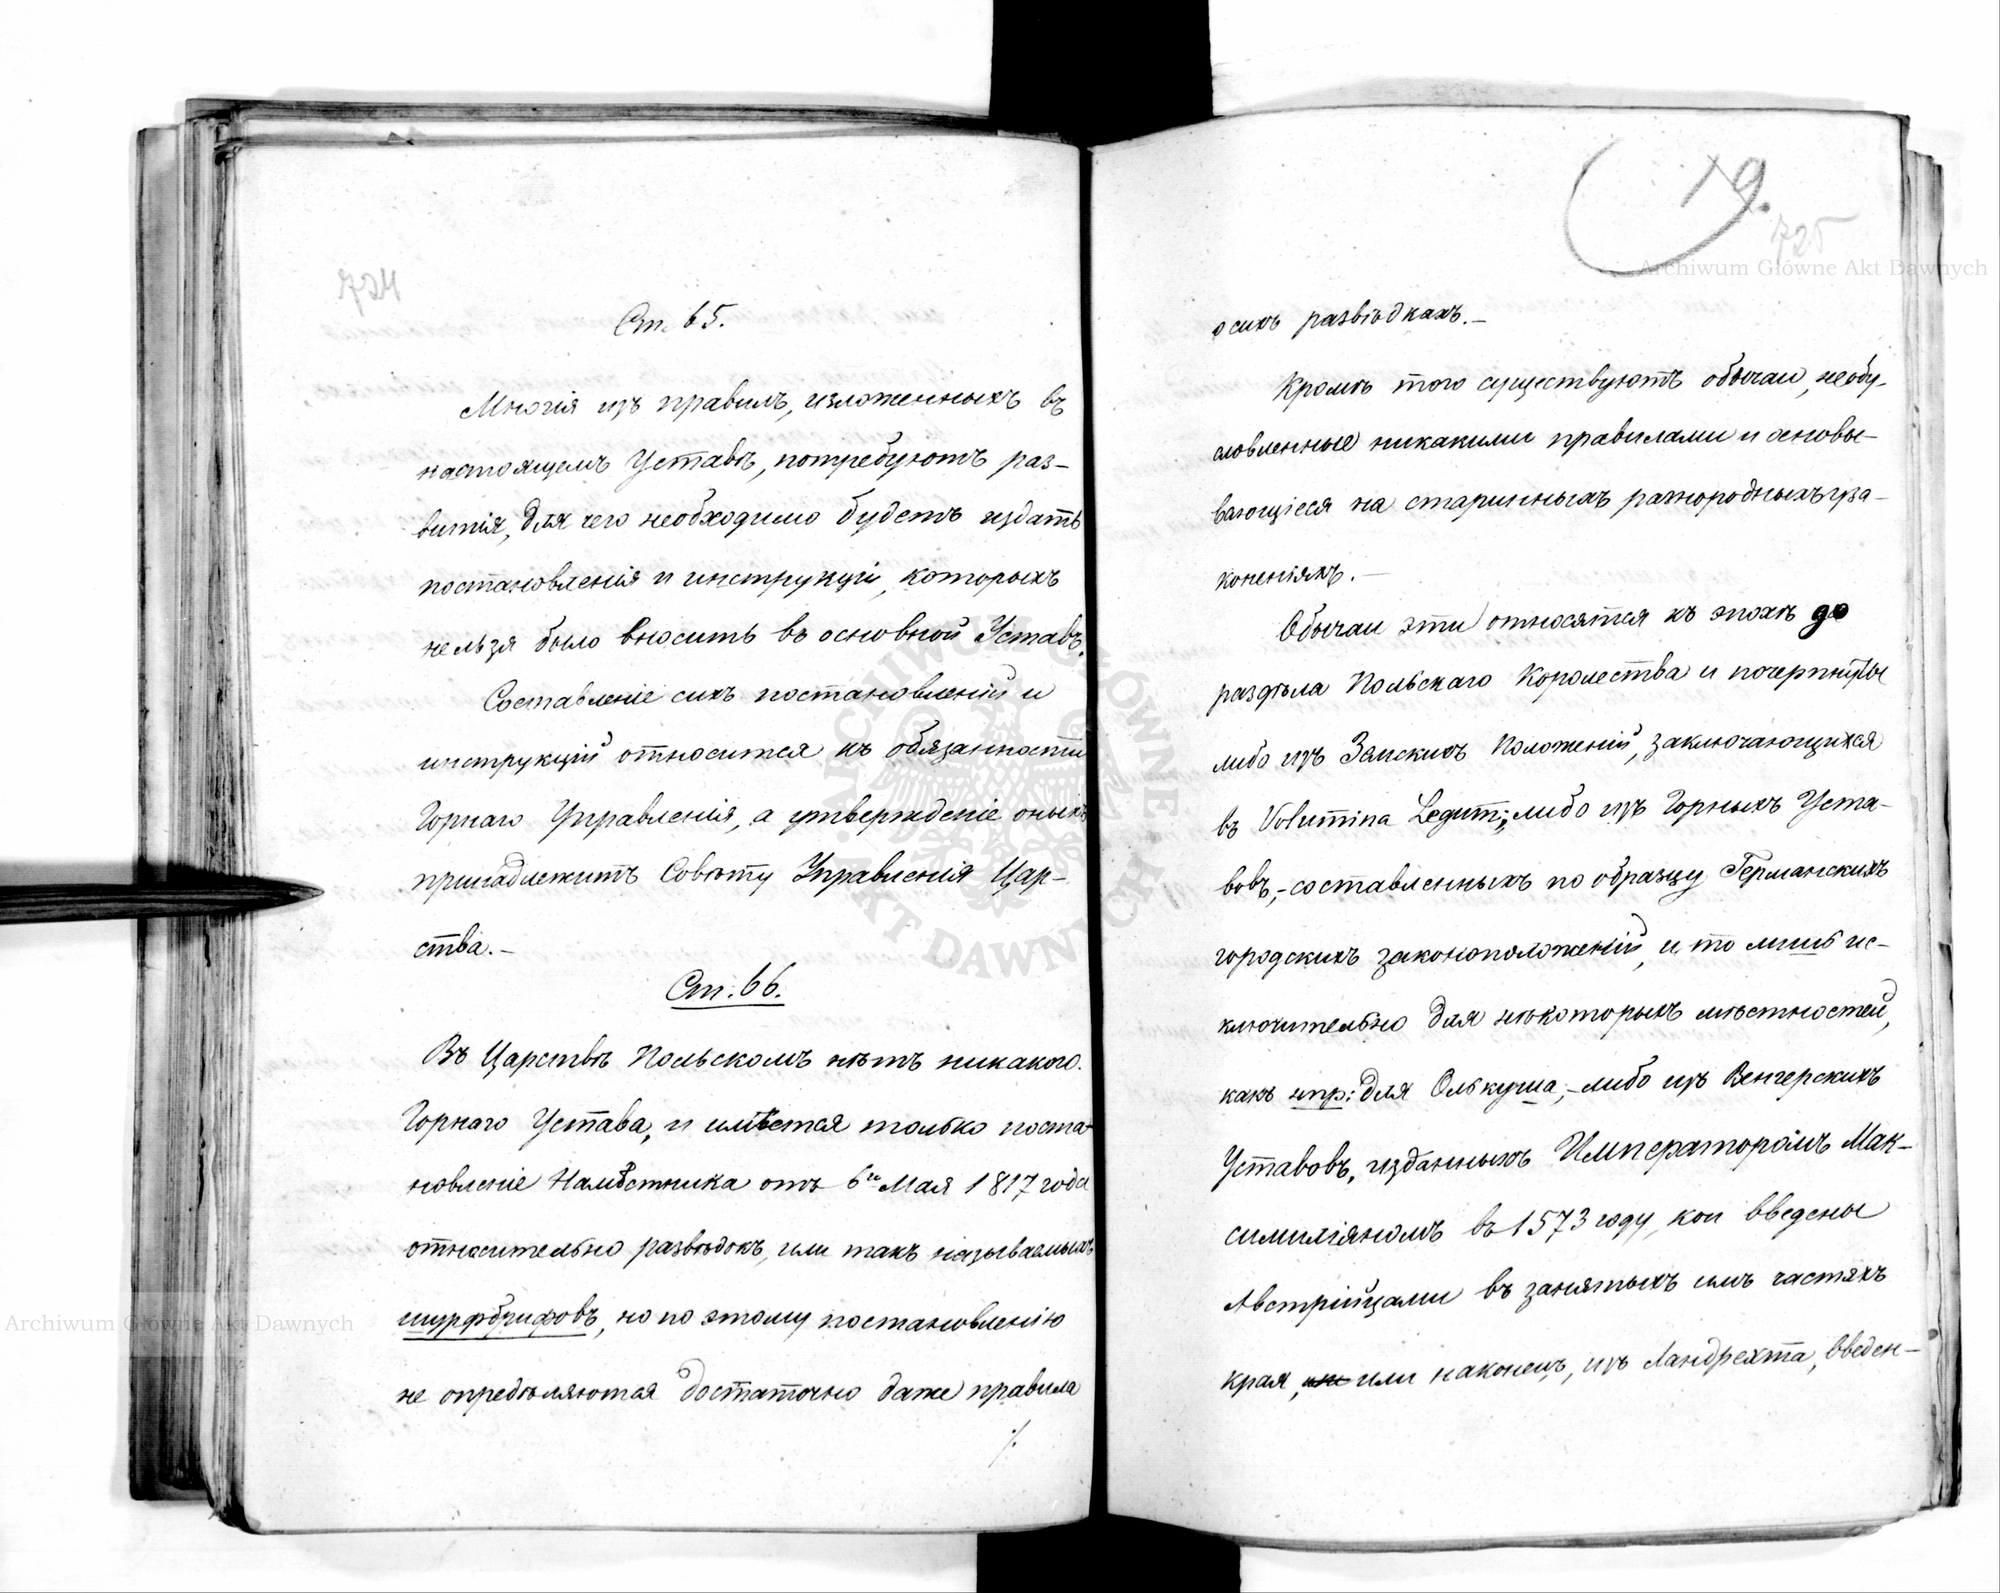 724
Ст. 65.
Многія изъ правилъ, изложенныхъ въ
настоящемъ Уставѣ, потребуютъ раз-
витія, для чего необходимо будетъ издать
постановленія и инструкціи, которыхъ
нельзя было вносить въ основной Уставъ.
Составленіе сихъ постановленій и
инструкцій относится къ обязанности
Горнаго Управленія, а утвержденіе оныхъ
принадлежитъ Совѣту Управленія Цар-
ства.-
Ст. 66.
Въ Царствѣ Польскомъ нѣтъ никакого
Горнаго Устава, и имѣется только поста-
новленіе Намѣстника отъ 6го Мая 1817 года
относительно развѣдокъ, или такъ называемыхъ
шурфбрифовъ, но по этому постановленію
не опредѣляются достаточно даже правила
./.
19.
725
о сихъ развѣдкахъ.-
Кромѣ того существуютъ обычаи, необу-
словленные никакими правилами и основы-
вающіеся на старинныхъ разнородныхъ уза-
коненіяхъ.-
Обычаи эти относятся къ эпохѣ до
раздѣла Польскаго Королества и почерпнуты
либо изъ Земскихъ Положеній, заключающихся
въ Volumina Legum; либо изъ Горныхъ Уста-
вовъ,-составленныхъ по образцу Германскихъ
городскихъ законоположеній, и то лишь ис-
ключительно для нѣкоторыхъ мѣстностей,
какъ нпр: для Олькуша,-либо изъ Венгерскихъ
Уставовъ, изданныхъ Императоромъ Мак-
симиліяномъ въ 1573 году, кои введены
Австрійцами въ занятыхъ имъ частяхъ
края, или наконецъ, изъ Ландрехта, введен-
Archiwum Główne Akt Dawnych
Archiwum Główne Akt Dawnych
ARCHIWUM GŁÓWNE AKT DAWNYCH